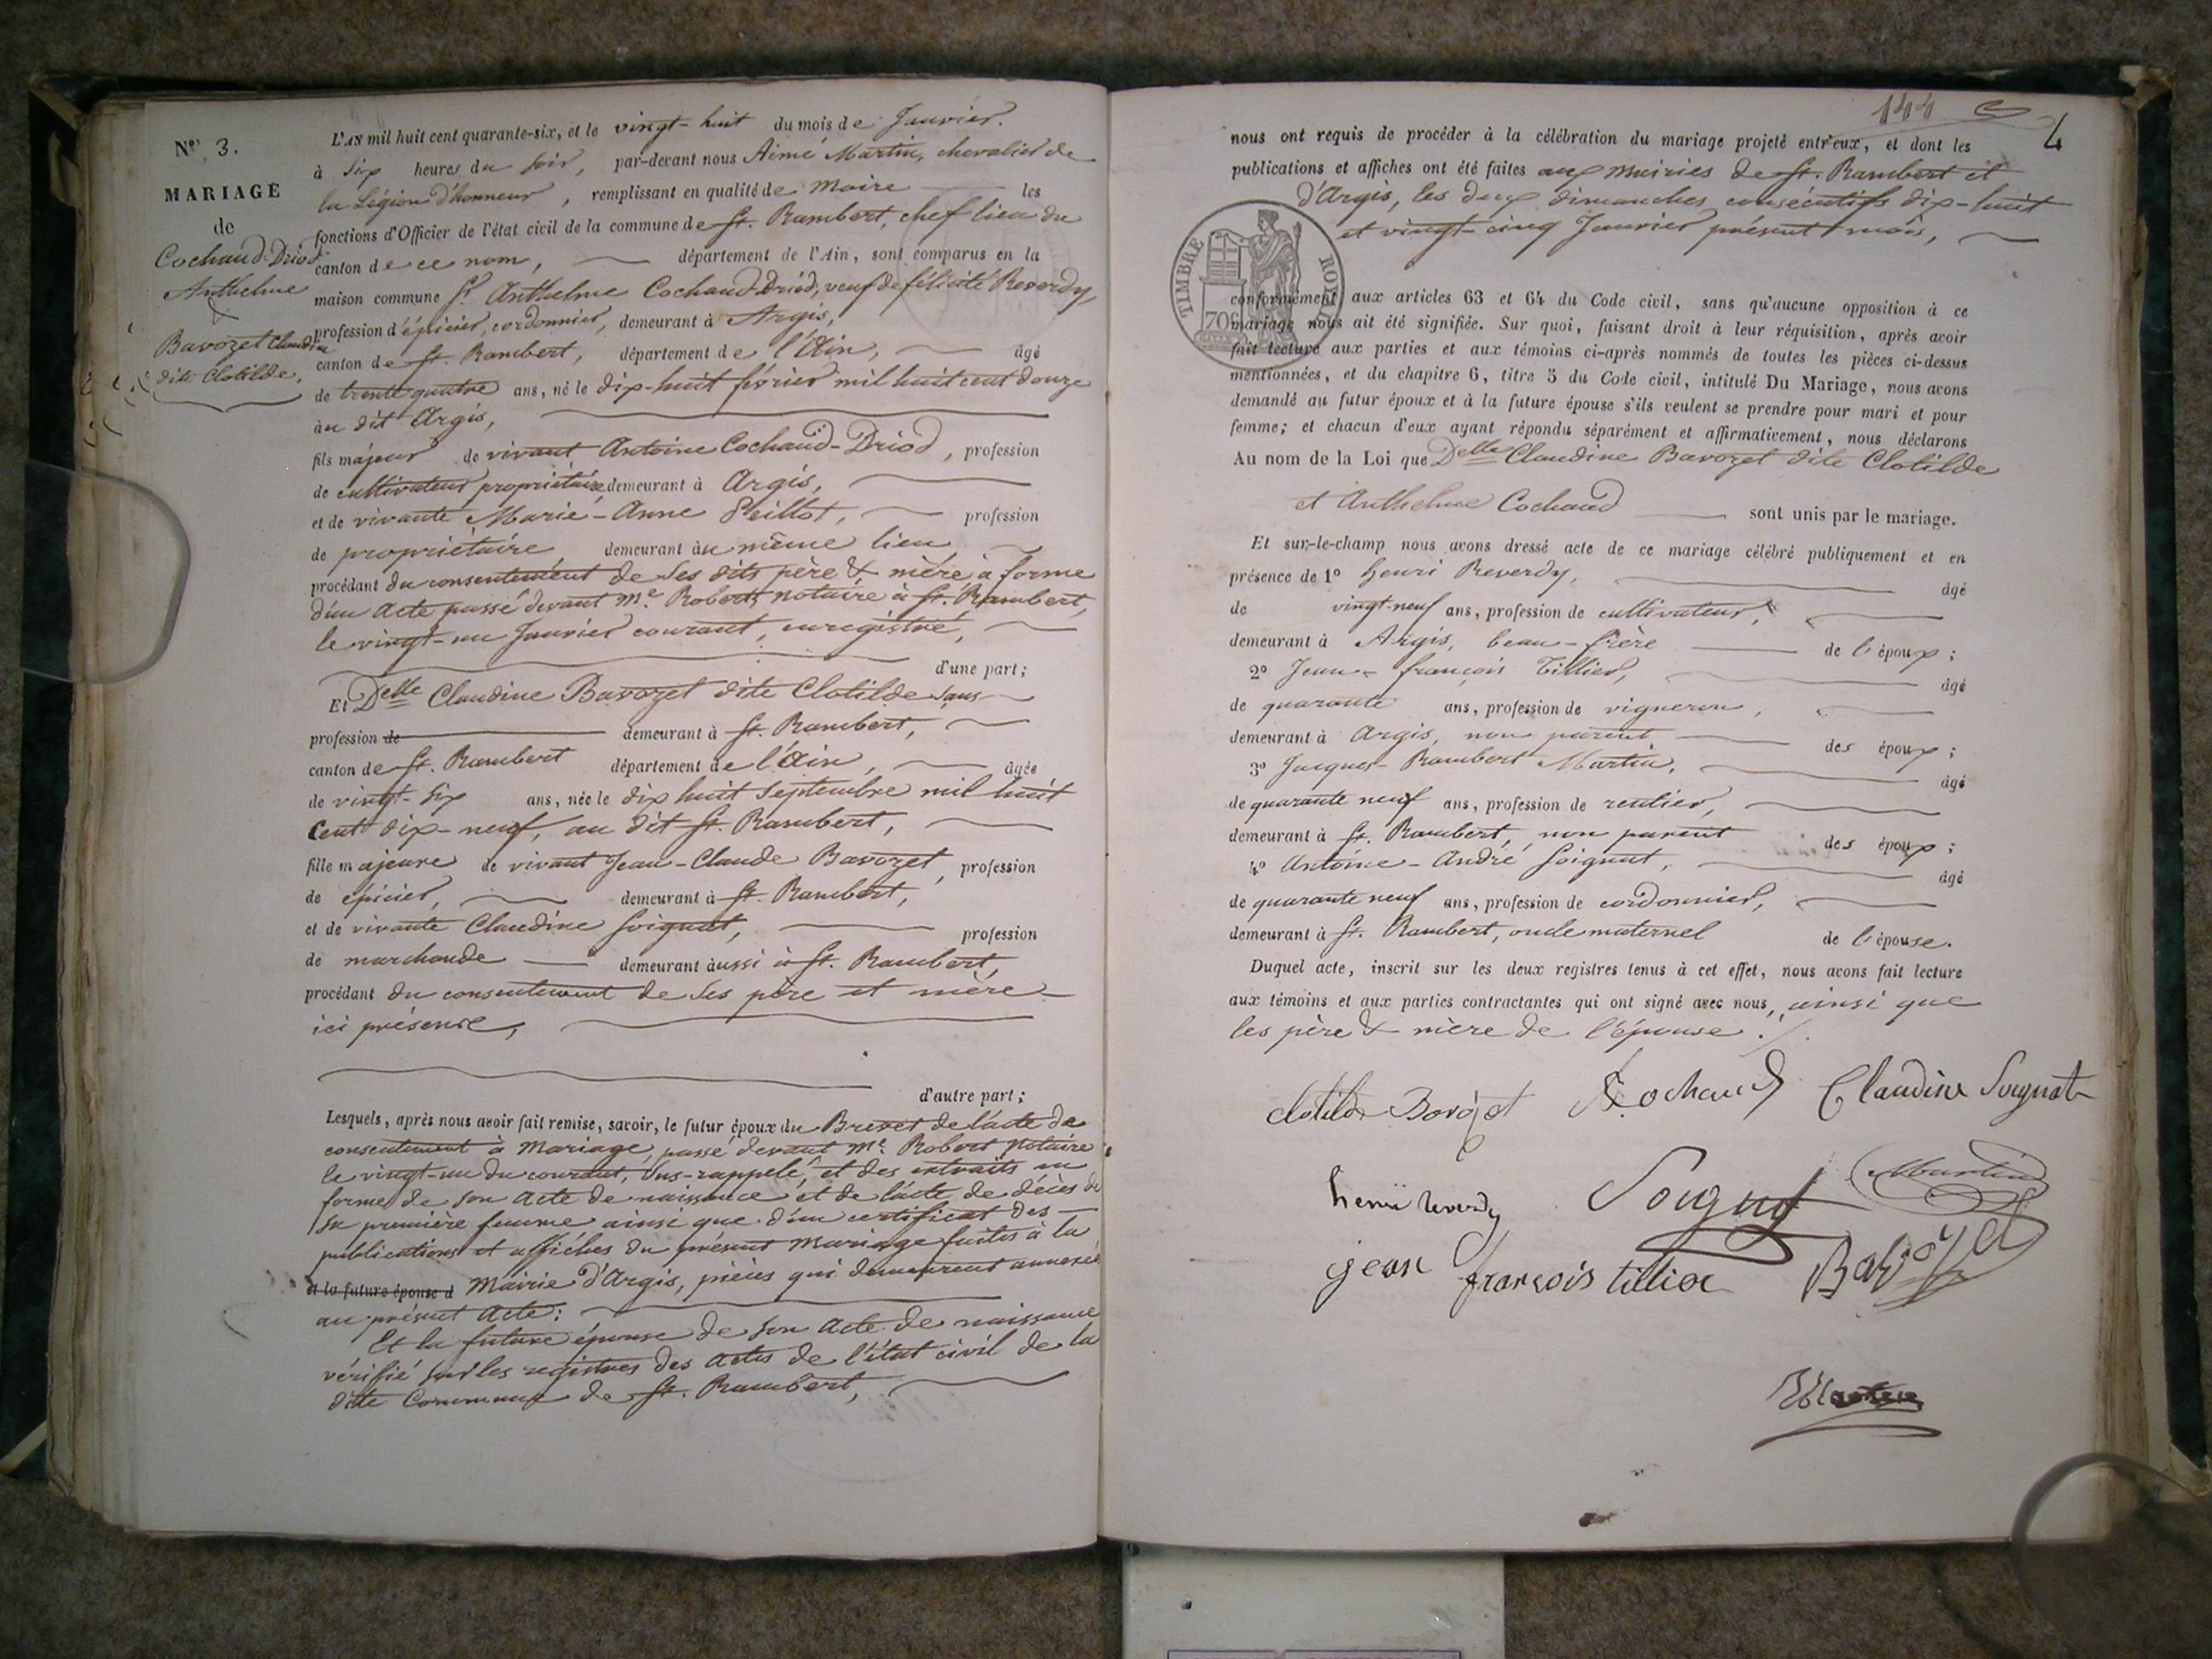 N.° 3.
MARIAGE
de
Cochaud-Driod
Anthelme
&
Bavozet Claudine
dite Clotilde.
L'AN mil huit cent quarante-six, et le vingt-huit du mois de Janvier.
à six heures du soir, par-devant nous Aimé Martin, chevalier de
la Légion d'honneur, remplissant en qualité de Maire les
fonctions d'Officier de l'état civil de la commune de St. Rambert, chef lieu du
canton de ce nom, département de l'Ain, sont comparus en la
maison commune Sr. Anthelme Cochaud-Driod, veuf de félicité Reverdy,
profession d'épicier, cordonnier, demeurant à Argis,
canton de St. Rambert, département de l'Ain, âgé
de trente quatre ans, né le dix-huit février mil huit cent douze
au dit Argis,
fils majeur de vivant Antoine Cochaud-Driod, profession
de cultivateur propriétaire, demeurant à Argis,
et de vivante Marie-Anne Peillot, profession
de propriétaire, demeurant au même lieu,
procédant du consentement de ses dits père & mère à forme
d'un Acte passé devant Me. Robert, notaire à St. Rambert,
le vingt-un Janvier courant, enregistré,
d'une part;
Et Delle Claudine Bavozet dite Clotilde sans
profession de demeurant à St. Rambert,
canton de St. Rambert département de l'Ain, âgée
de vingt-six ans, née le dix huit Septembre mil huit
Cent dix-neuf, au dit St. Rambert,
fille majeure de vivant Jean-Claude Bavozet, profession
de épicier, demeurant à St. Rambert,
et de vivante Claudine Soignat, profession
de marchande demeurant aussi à St. Rambert,
procédant du consentement de ses père et mère
ici présents,
d'autre part;
Lesquels, après nous avoir fait remise, savoir, le futur époux du Brevet de l'acte de
consentement à Mariage, passé devant Me. Robert Notaire
le vingt-un du courant, sus-rappelé, et des extraits en
forme de son Acte de naissance et de l'acte de décès de
sa première femme ainsi que d'un certificat des
publications et affiches du présent Mariage faites à la
et la future épouse d Mairie d'Argis, pièces qui demeurent annexées
au présent Acte:
Et la future épouse de son Acte de naissance
vérifié sur les registres des Actes de l'état civil de la
dite Commune de St. Rambert,
144
4
nous ont requis de procéder à la célébration du mariage projeté entr'eux, et dont les
publications et affiches ont été faites aux mairies de St. Rambert et
d'Argis, les deux dimanches consécutifs dix-huit
et vingt-cinq Janvier présent mois,
TIMBRE ROYAL
70c
conformément aux articles 63 et 64 du Code civil, sans qu'aucune opposition à ce
mariage nous ait été signifiée. Sur quoi, faisant droit à leur réquisition, après avoir
fait lecture aux parties et aux témoins ci-après nommés de toutes les pièces ci-dessus
mentionnées, et du chapitre 6, titre 5 du Code civil, intitulé Du Mariage, nous avons
demandé au futur époux et à la future épouse s'ils veulent se prendre pour mari et pour
femme; et chacun d'eux ayant répondu séparément et affirmativement, nous déclarons
Au nom de la Loi que Delle Claudine Bavozet dite Clotilde
et Anthelme Cochaud sont unis par le mariage.
Et sur-le-champ nous avons dressé acte de ce mariage célébré publiquement et en
présence de 1° Henri Reverdy, âgé
de vingt-neuf ans, profession de cultivateur,
demeurant à Argis, beau-frère de l'époux;
2° Jean-françois Tillier, âgé
de quarante ans, profession de vigneron,
demeurant à Argis, non parent des époux;
3° Jacques-Rambert Martin, âgé
de quarante neuf ans, profession de rentier,
demeurant à St. Rambert, non parent des époux;
4° Antoine-André Soignat, âgé
de quarante neuf ans, profession de cordonnier,
demeurant à St. Rambert, oncle maternel de l'épouse.
Duquel acte, inscrit sur les deux registres tenus à cet effet, nous avons fait lecture
aux témoins et aux parties contractantes qui ont signé avec nous, ainsi que
les père & mère de l'épouse.
Clotilde Bavozet Cochaud Claudine Soignat
henri reverdy Soignat Martin
jean françois tillier Bavozet